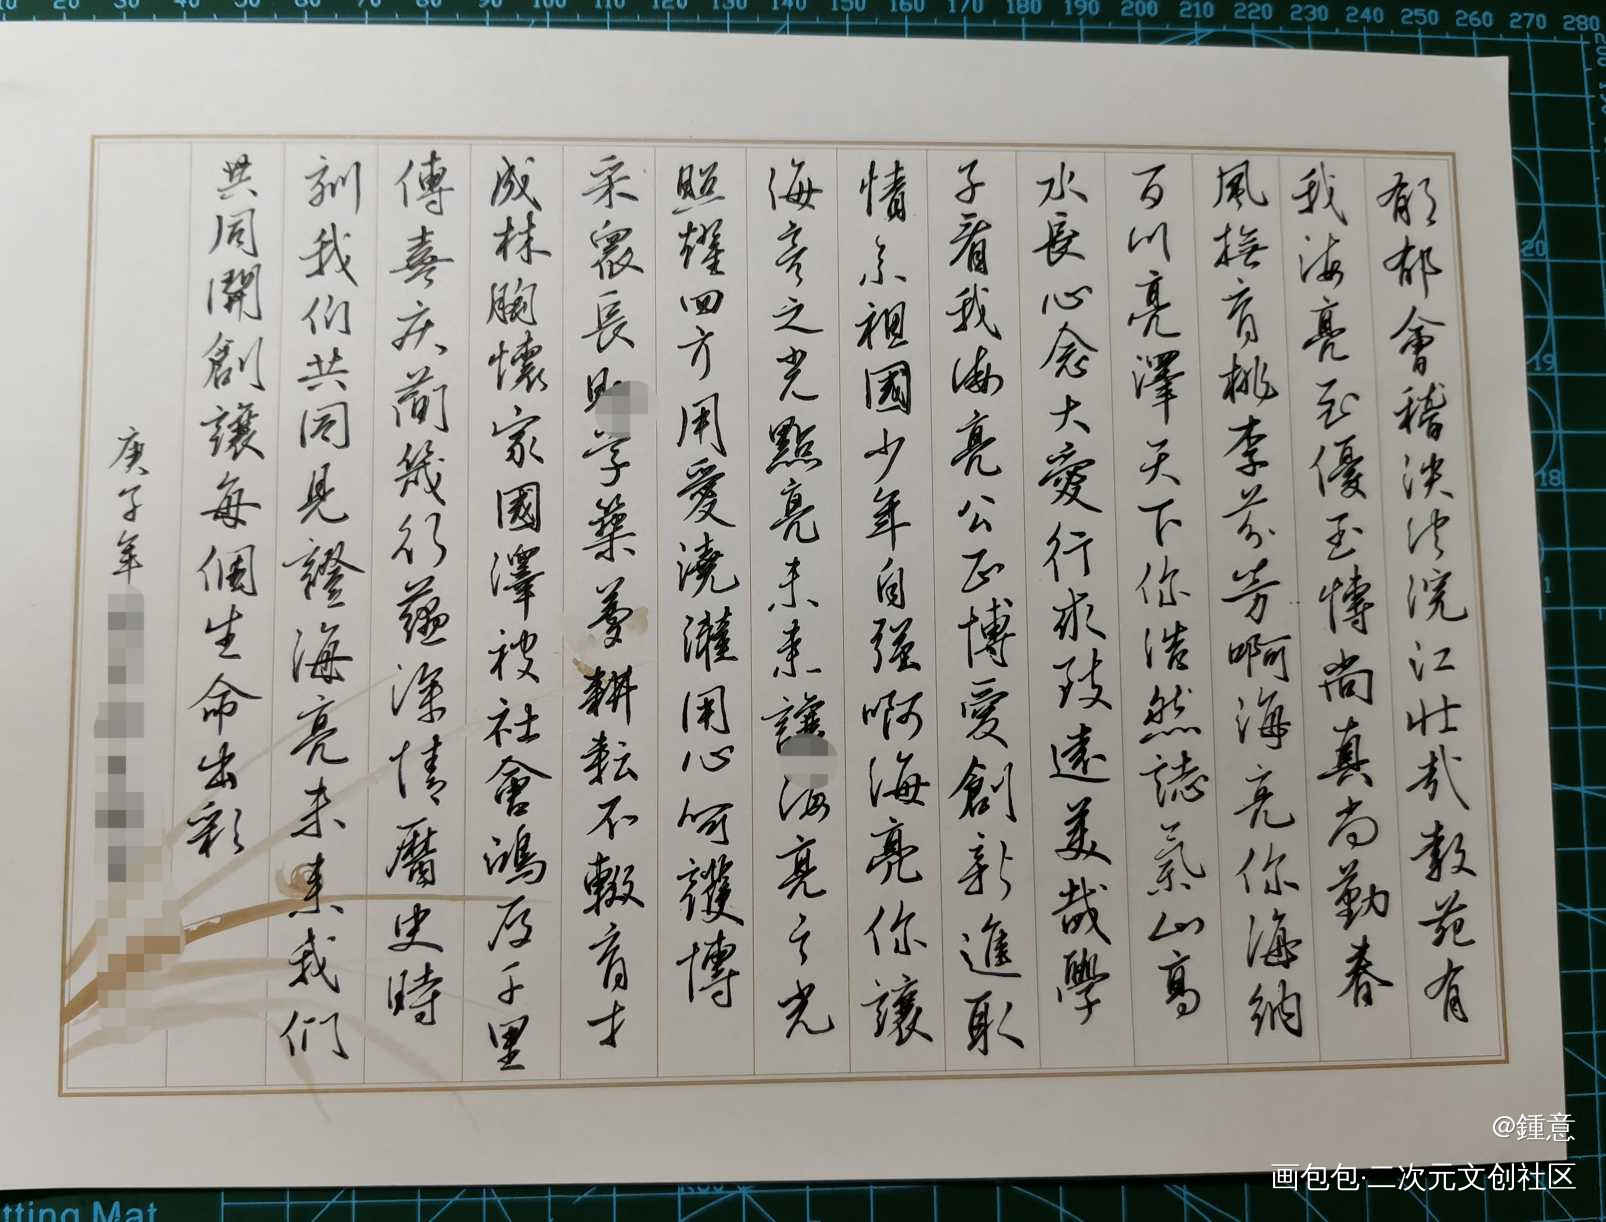 郁郁會稽泱泱浣江壯哉教苑有
我海亮至優至博尚真尚勤春
風撫育桃李芬芳啊海亮你海納
百川亮澤天下你浩然誌氣山高
水長心念大愛行求致遠美哉學
子看我海亮公正博愛創新進取
情系祖國少年自強啊海亮你讓
海亮之光點亮未來讓海亮之光
照耀四方用愛澆灌用心呵護博
采眾長 學築夢耕耘不輟育才
成林胸懷家國澤被社會鴻 千里
傳喜庆簡幾行蘊深情曆史時
刻我们共同見證海亮未來我們
共同開創讓每個生命出彩
庚子年
@鍾意
画包包·二次元文创社区
10 20 30 40 50 60 70 80 90 100 110 120 130 140 150 160 170 180 190 200 210 220 230 240 250 260 270 280
20
19
18
tting Mat